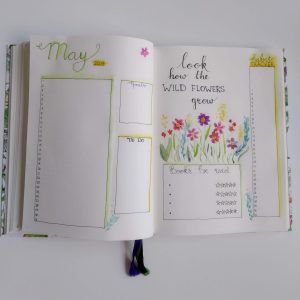 May
2019
Goals
To Do
look
how the
WILD FLOWERS
grow
Books I've read